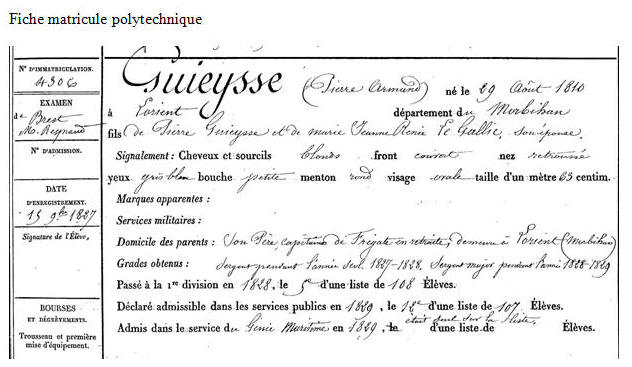 Fiche matricule polytechnique
N° D'IMMATRICULATION.
4306
EXAMEN
de Brest
M. Reynaud
N° D'ADMISSION.
DATE
D'ENREGISTREMENT.
15 9bre 1827
Signature de l'Élève,
BOURSES
ET DÉGRÈVEMENTS.
Trousseau et première
mise d'équipement.
Guieysse (Pierre Armand) né le 29 Août 1810
à Lorient département du Morbihan
fils de Pierre Guieysse et de marie Jeanne Renée Le Gallic, son épouse.
Signalement : Cheveux et sourcils blonds front couvert nez retroussé
yeux gris bleu bouche petite menton rond visage ovale taille d'un mètre 63 centim.
Marques apparentes :
Services militaires :
Domicile des parents : Son Père, capitaine de Frégate en retraite, demeure à Lorient (Morbihan)
Grades obtenus : Sergent pendant l'année scol. 1827-1828, Sergent major pendant l'année 1828-1829
Passé à la 1re division en 1828, le 5e d'une liste de 108 Élèves.
Déclaré admissible dans les services publics en 1829, le 12e d'une liste de 107 Élèves.
Admis dans le service du Génie Maritime en 1829, le était seul sur la liste, d'une liste de Élèves.